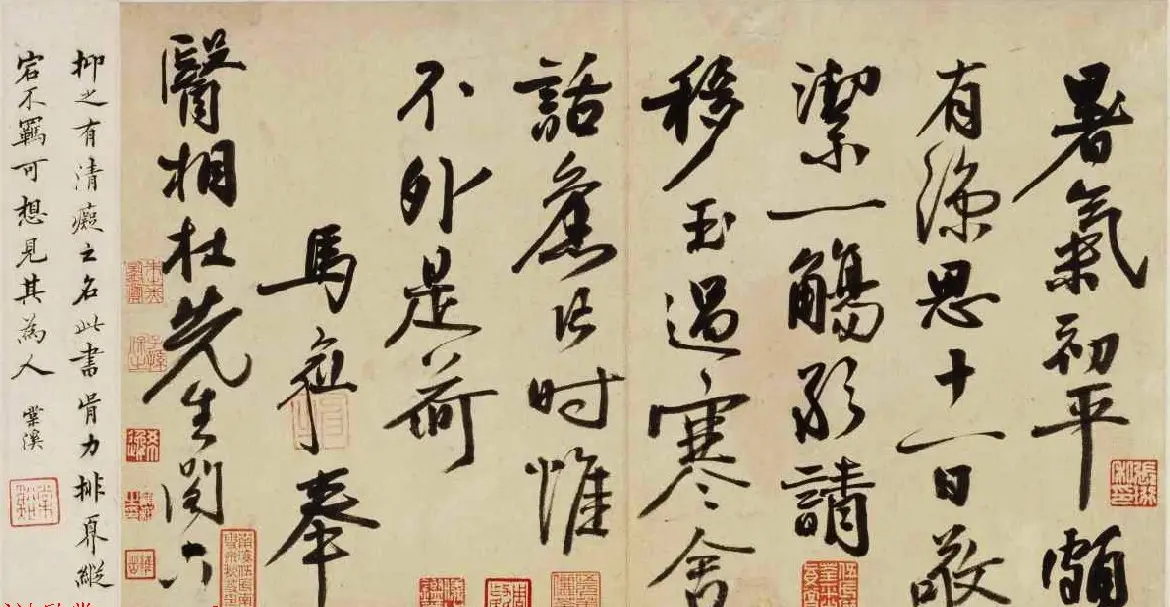 暑氣初平頗
有涼思十一日敬
潔一觴敢請
移玉過寒舍
話舊片时惟
不外是荷
馬愈奉
醫相杜先生閣下
抑之有清癡之名此書骨力排奡縱
宕不羈可想見其為人 棠溪